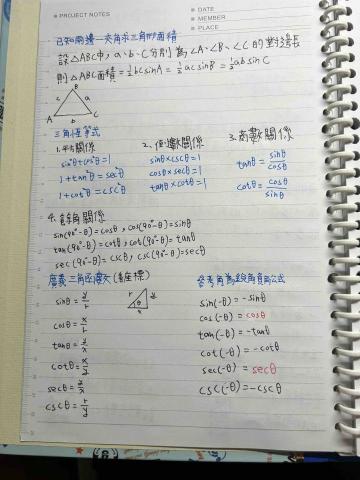 PROJECT NOTES
DATE
MEMBER
PLACE
已知兩邊一夾角求三角形面積
設△ABC中, a、b、c分別為∠A、∠B、∠C的對邊長
則△ABC面積 = 1/2 bc sinA = 1/2 ac sinB = 1/2 ab sinC
B
c a
A b C
三角恆等式
1. 平方關係
sin²θ+cos²θ=1
1+tan²θ=sec²θ
1+cot²θ=csc²θ
2. 倒數關係
sinθ×cscθ=1
cosθ×secθ=1
tanθ×cotθ=1
3. 商數關係
tanθ = sinθ/cosθ
cotθ = cosθ/sinθ
4. 餘角關係
sin(90°-θ)=cosθ, cos(90°-θ)=sinθ
tan(90°-θ)=cotθ, cot(90°-θ)=tanθ
sec(90°-θ)=cscθ, csc(90°-θ)=secθ
廣義三角函數 (座標)
sinθ = y/r
cosθ = x/r
tanθ = y/x
cotθ = x/y
secθ = r/x
cscθ = r/y
r y
θ
x
負角公式
sin(-θ)=-sinθ
cos(-θ)=cosθ
tan(-θ)=-tanθ
cot(-θ)=-cotθ
sec(-θ)=secθ
csc(-θ)=-cscθ